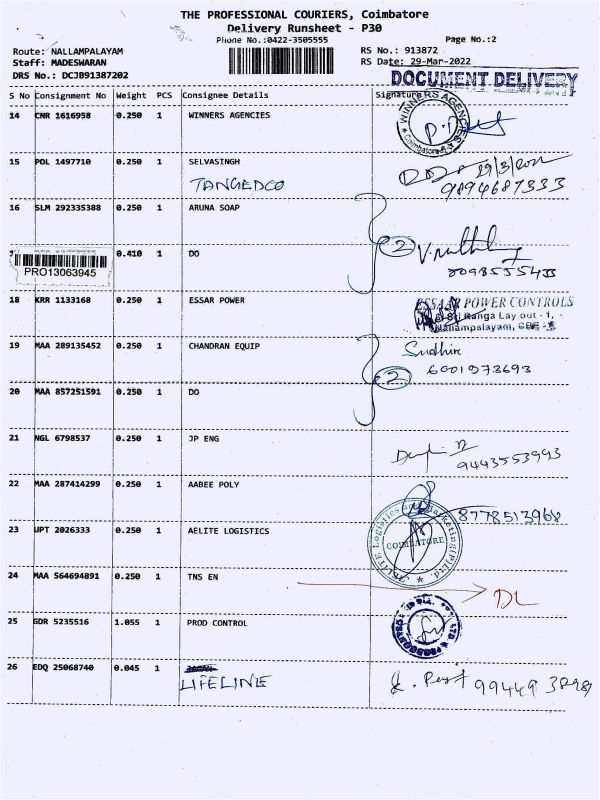 THE PROFESSIONAL COURIERS, Coimbatore
Delivery Runsheet - P30
Phone No.:0422-3505555
Page No.:2
Route: NALLAMPALAYAM
RS No.: 913872
Staff: MADESWARAN
RS Date: 29-Mar-2022
DRS No.: DCJB91387202
DOCUMENT DELIVERY
S No Consignment No Weight PCS Consignee Details Signature
14 CNR 1616958 0.250 1 WINNERS AGENCIES
WINNERS AGENCIES
Coimbatore
15 POL 1497710 0.250 1 SELVASINGH
TANGEDCO
29/3/2022
9894687333
16 SLM 292335388 0.250 1 ARUNA SOAP
0.410 1 DO
2
PRO13063945
18 KRR 1133168 0.250 1 ESSAR POWER
ESSAAR POWER CONTROLS
Sri Ranga Lay out - 1,
Nallampalayam,
19 MAA 289135452 0.250 1 CHANDRAN EQUIP
Sudhir
6001973693
2
20 MAA 857251591 0.250 1 DO
21 NGL 6798537 0.250 1 JP ENG
9443553993
22 MAA 287414299 0.250 1 AABEE POLY
8778513968
23 UPT 2026333 0.250 1 AELITE LOGISTICS
AELITE Logistics and Marketing(P)Ltd.
COIMBATORE
24 MAA 564694891 0.250 1 TNS EN
DL
25 GDR 5235516 1.055 1 PROD CONTROL
26 EDQ 25068740 0.045 1
LIFELINE